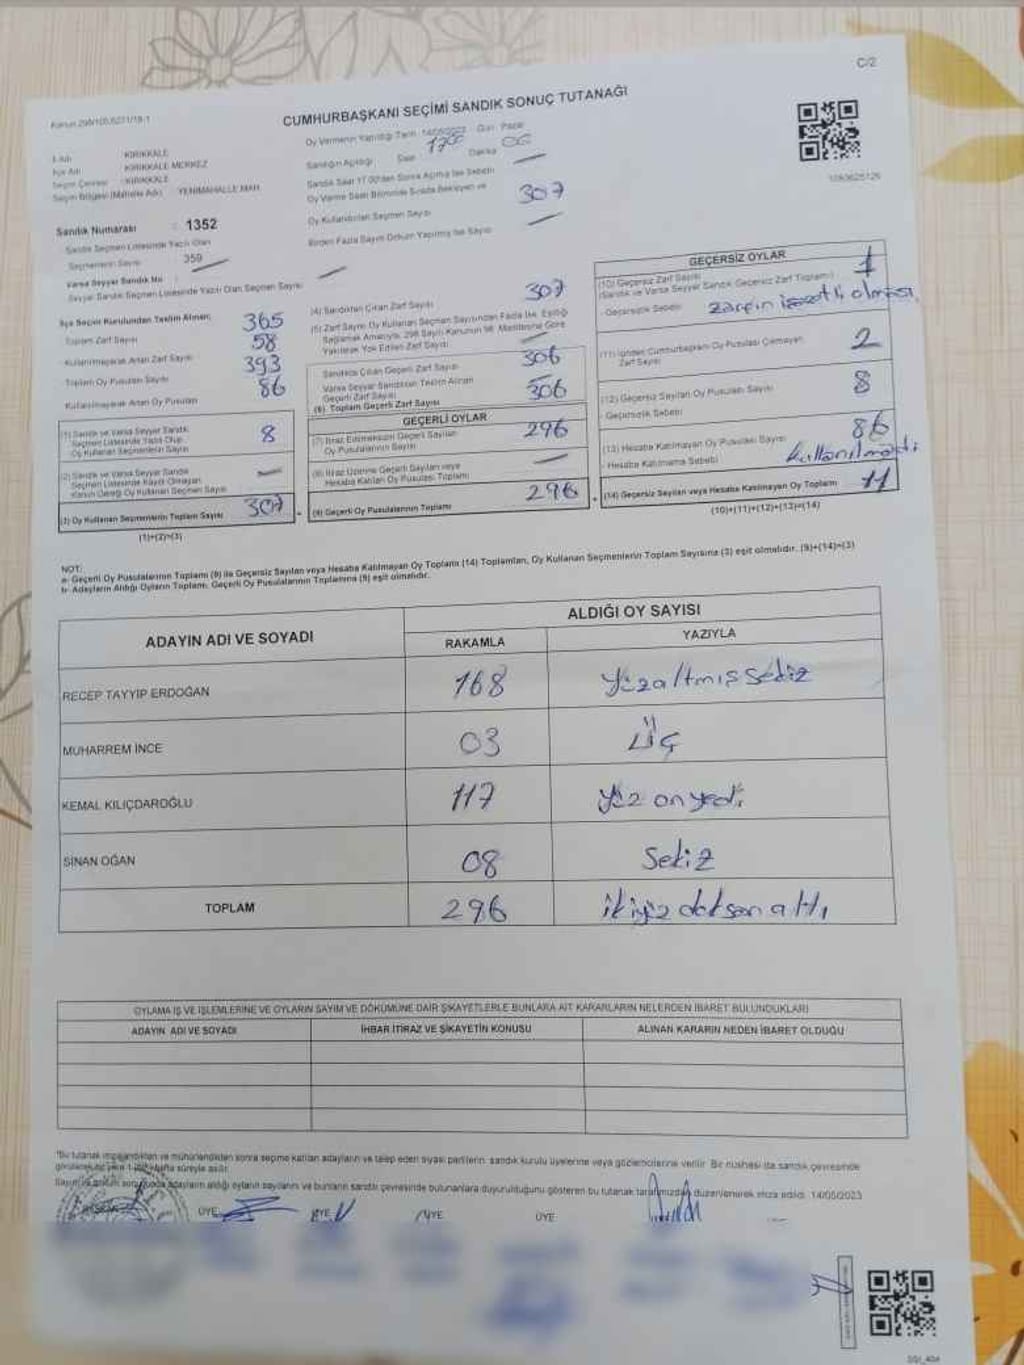 C/2
CUMHURBAŞKANI SEÇİMİ SANDIK SONUÇ TUTANAĞI
Oy Vermenin Yapıldığı Tarih 14/05/2023 Gün Pazar
KIRIKKALE
KIRIKKALE MERKEZ
KIRIKKALE
Seçim Bölgesi (Mahalle Adı) YENİMAHALLE MAH.
Sandığın Açıldığı Saat 17 00 Dakika 00
Sandık Saat 17:00'den Sonra Açılmış İse Sebebi
Oy Verme Saati Bitiminde Sırada Bekleyen ve
Oy Kullandırılan Seçmen Sayısı 307
Birden Fazla Sayım Döküm Yapılmış İse Sayısı
Sandık Numarası : 1352
Sandık Seçmen Listesinde Yazılı Olan
Seçmenlerin Sayısı 359
Varsa Seyyar Sandık No :
Seyyar Sandık Seçmen Listesinde Yazılı Olan Seçmen Sayısı
İlçe Seçim Kurulundan Teslim Alınan;
Toplam Zarf Sayısı 365
Kullanılmayarak Artan Zarf Sayısı 58
Toplam Oy Pusulası Sayısı 393
Kullanılmayarak Artan Oy Pusulası 86
(1) Sandık ve Varsa Seyyar Sandık
Seçmen Listesinde Yazılı Olup
Oy Kullanan Seçmenlerin Sayısı 8
(2) Sandık ve Varsa Seyyar Sandık
Seçmen Listesinde Kayıtlı Olmayan
Kanun Gereği Oy Kullanan Seçmen Sayısı
(3) Oy Kullanan Seçmenlerin Toplam Sayısı 307
(1)+(2)=(3)
(4) Sandıktan Çıkan Zarf Sayısı 307
(5) Zarf Sayısı Oy Kullanan Seçmen Sayısından Fazla İse, Eşitliği
Sağlamak Amacıyla, 298 Sayılı Kanunun 98. Maddesine Göre
Yakılarak Yok Edilen Zarf Sayısı
Sandıkta Çıkan Geçerli Zarf Sayısı 306
Varsa Seyyar Sandıktan Teslim Alınan
Geçerli Zarf Sayısı
(6) Toplam Geçerli Zarf Sayısı 306
GEÇERLİ OYLAR
(7) İtiraz Edilmeksizin Geçerli Sayılan
Oy Pusulalarının Sayısı 296
(8) İtiraz Üzerine Geçerli Sayılan veya
Hesaba Katılan Oy Pusulası Toplamı
(9) Geçerli Oy Pusulalarının Toplamı 296
GEÇERSİZ OYLAR
(10) Geçersiz Zarf Sayısı 1
(Sandık ve Varsa Seyyar Sandık Geçersiz Zarf Toplamı)
- Geçersizlik Sebebi zarfın işaretli olması.
(11) İçinden Cumhurbaşkanı Oy Pusulası Çıkmayan
Zarf Sayısı 2
(12) Geçersiz Sayılan Oy Pusulası Sayısı 8
- Geçersizlik Sebebi
(13) Hesaba Katılmayan Oy Pusulası Sayısı 86
- Hesaba Katılmama Sebebi kullanılmadı
(14) Geçersiz Sayılan veya Hesaba Katılmayan Oy Toplamı 11
(10)+(11)+(12)+(13)=(14)
NOT:
a- Geçerli Oy Pusulalarının Toplamı (9) ile Geçersiz Sayılan veya Hesaba Katılmayan Oy Toplamı (14) Toplamları, Oy Kullanan Seçmenlerin Toplam Sayısına (3) eşit olmalıdır. (9)+(14)=(3)
b- Adayların Aldığı Oyların Toplamı, Geçerli Oy Pusulalarının Toplamına (9) eşit olmalıdır.
ADAYIN ADI VE SOYADI ALDIĞI OY SAYISI
RAKAMLA YAZIYLA
RECEP TAYYİP ERDOĞAN 168 yüzaltmışsekiz
MUHARREM İNCE 03 üç
KEMAL KILIÇDAROĞLU 117 yüz onyedi
SİNAN OĞAN 08 sekiz
TOPLAM 296 ikiyüz doksan altı
OYLAMA İŞ VE İŞLEMLERİNE VE OYLARIN SAYIM VE DÖKÜMÜNE DAİR ŞİKAYETLERLE BUNLARA AİT KARARLARIN NELERDEN İBARET BULUNDUKLARI
ADAYIN ADI VE SOYADI İHBAR İTİRAZ VE ŞİKAYETİN KONUSU ALINAN KARARIN NEDEN İBARET OLDUĞU
*Bu tutanak imzalandıktan ve mühürlendikten sonra seçime katılan adayların ve talep eden siyasi partilerin, sandık kurulu üyelerine veya gözlemcilerine verilir. Bir nüshası da sandık çevresinde
süreyle asılır.
adayların aldığı oyların sayılarını ve bunların sandık çevresinde bulunanlara duyurulduğunu gösteren bu tutanak tarafımızdan düzenlenerek imza edildi. 14/05/2023
BAŞKAN ÜYE ÜYE ÜYE ÜYE